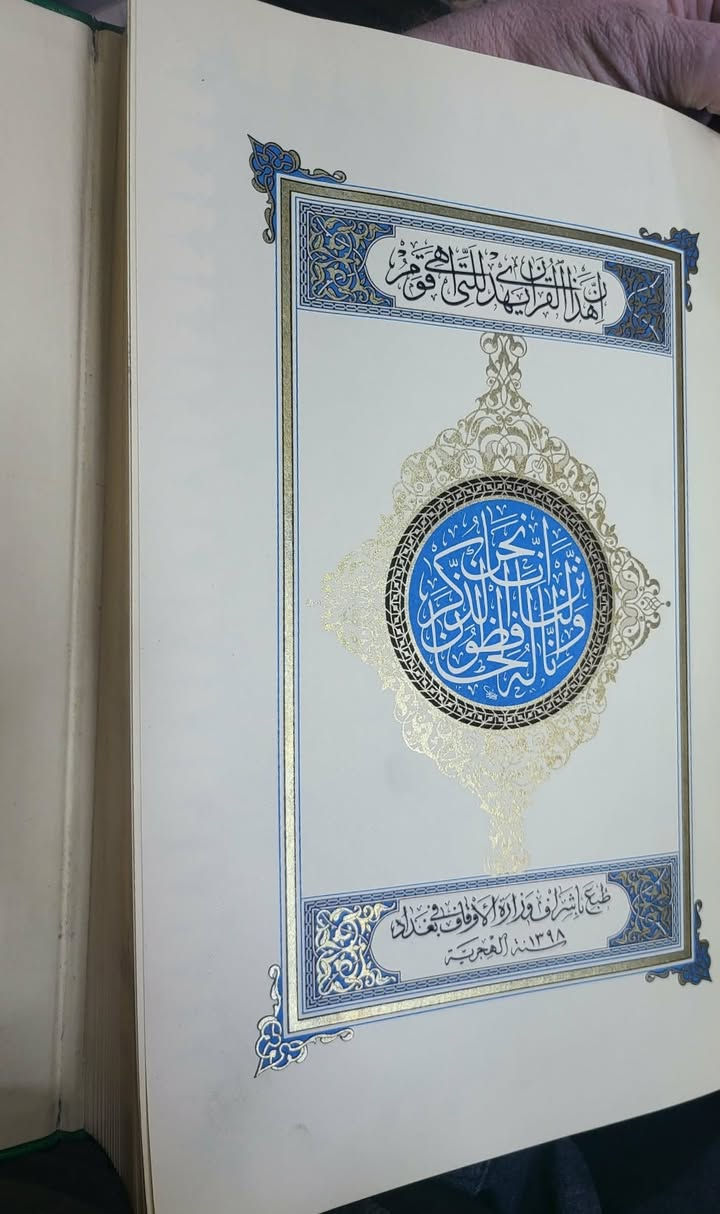 إِنَّ هَذَا القُرْآنَ يَهْدِي لِلَّتِي هِيَ أَقْوَمُ
إنّا نحن نزلنا الذكر وإنّا له لحافظون
طبع باشراف وزارة الأوقاف في بغداد
سنة ١٣٩٨ الهجرية